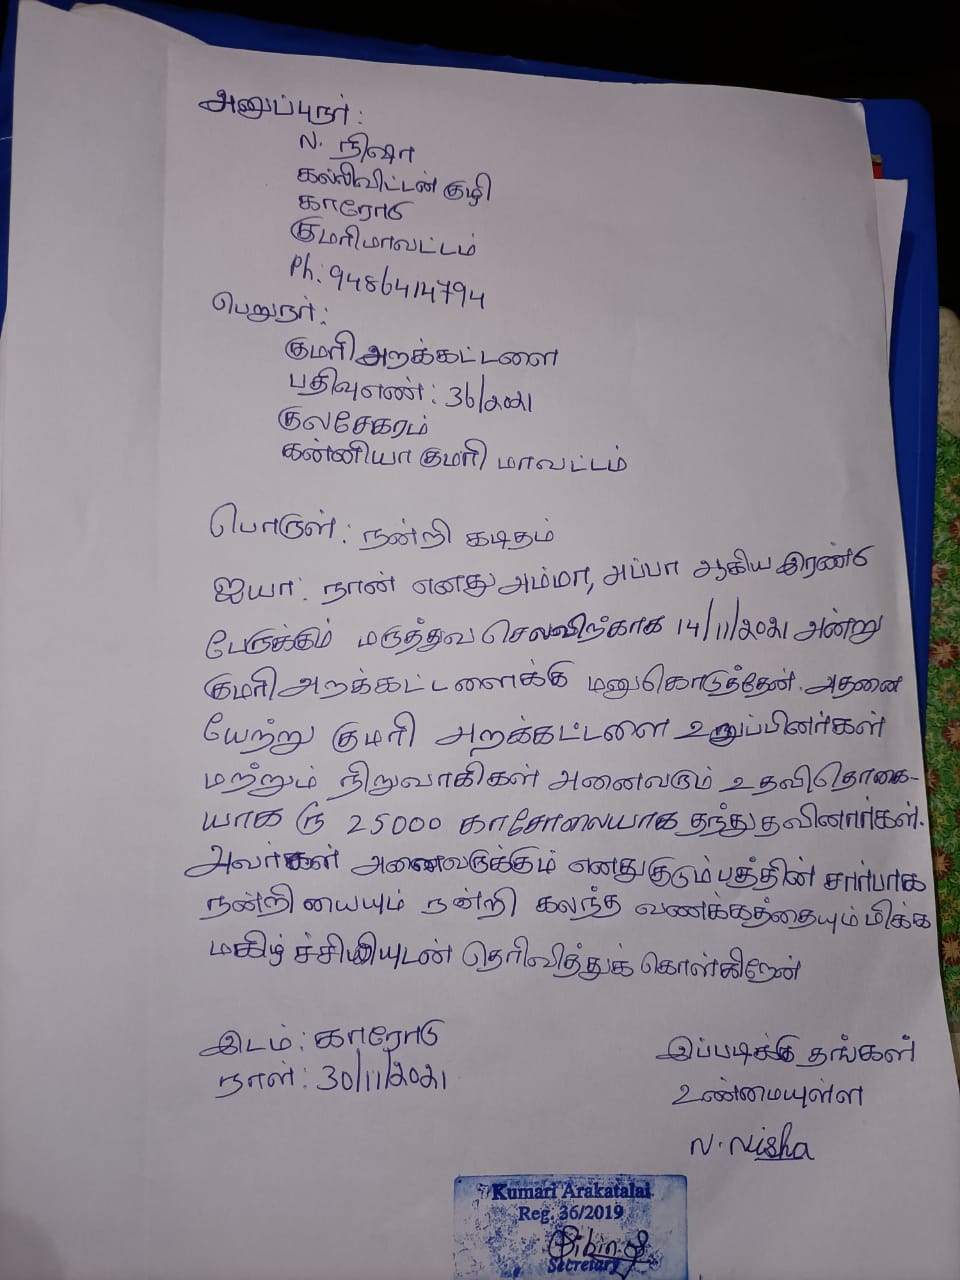 அனுப்புநர்:
N. நிஷா
கல்லிவிட்டன் குழி
காரோடு
குமரிமாவட்டம்
Ph: 9486414794
பெறுநர்:
குமரி அறக்கட்டளை
பதிவுஎண்: 36/2021
குலசேகரம்
கன்னியா குமரி மாவட்டம்
பொருள்: நன்றி கடிதம்
ஐயா: நான் எனது அம்மா, அப்பா ஆகிய இரண்டு
பேருக்கும் மருத்துவ செலவிற்காக 14/11/2021 அன்று
குமரி அறக்கட்டளைக்கு மனுகொடுத்தேன். அதனை
யேற்று குமரி அறக்கட்டளை உறுப்பினர்கள்
மற்றும் நிறுவாகிகள் அனைவரும் உதவிதொகை-
யாக ரூ 25000 காசோலையாக தந்துதவினார்கள்.
அவர்கள் அனைவருக்கும் எனதுகுடும்பத்தின் சார்பாக
நன்றியையும் நன்றி கலந்த வணக்கத்தையும் மிக்க
மகிழ்ச்சியுடன் தெரிவித்துக் கொள்கிறேன்
இடம்: காரோடு
நாள்: 30/11/2021
இப்படிக்கு தங்கள்
உண்மையுள்ள
N. Nisha
Kumari Arakatalai
Reg. 36/2019
Bibin
Secretary